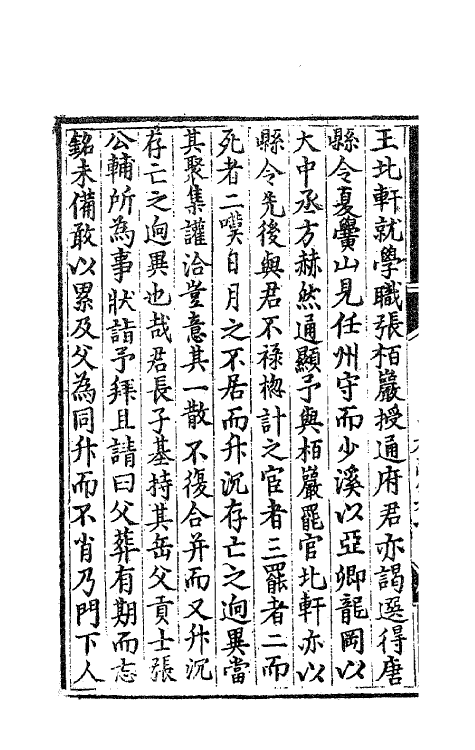 王北軒就學職張栢巖授通府君亦謁選得唐
縣令夏黌山見任州守而少溪以亞卿龍岡以
大中丞方赫然通顯予與栢巖罷官北軒亦以
縣令先後與君不祿㧾計之宦者三罷者二而
死者二噗日月之不居而升沉存亡之逈異當
其聚集讙洽豈意其一散不復合并而又升沉
存亡之逈異也哉君長子基持其岳父貢士張
公輔所為事狀詣予拜且請曰父葬有期而志
銘未備敢以累及父為同升而不肖乃門下人